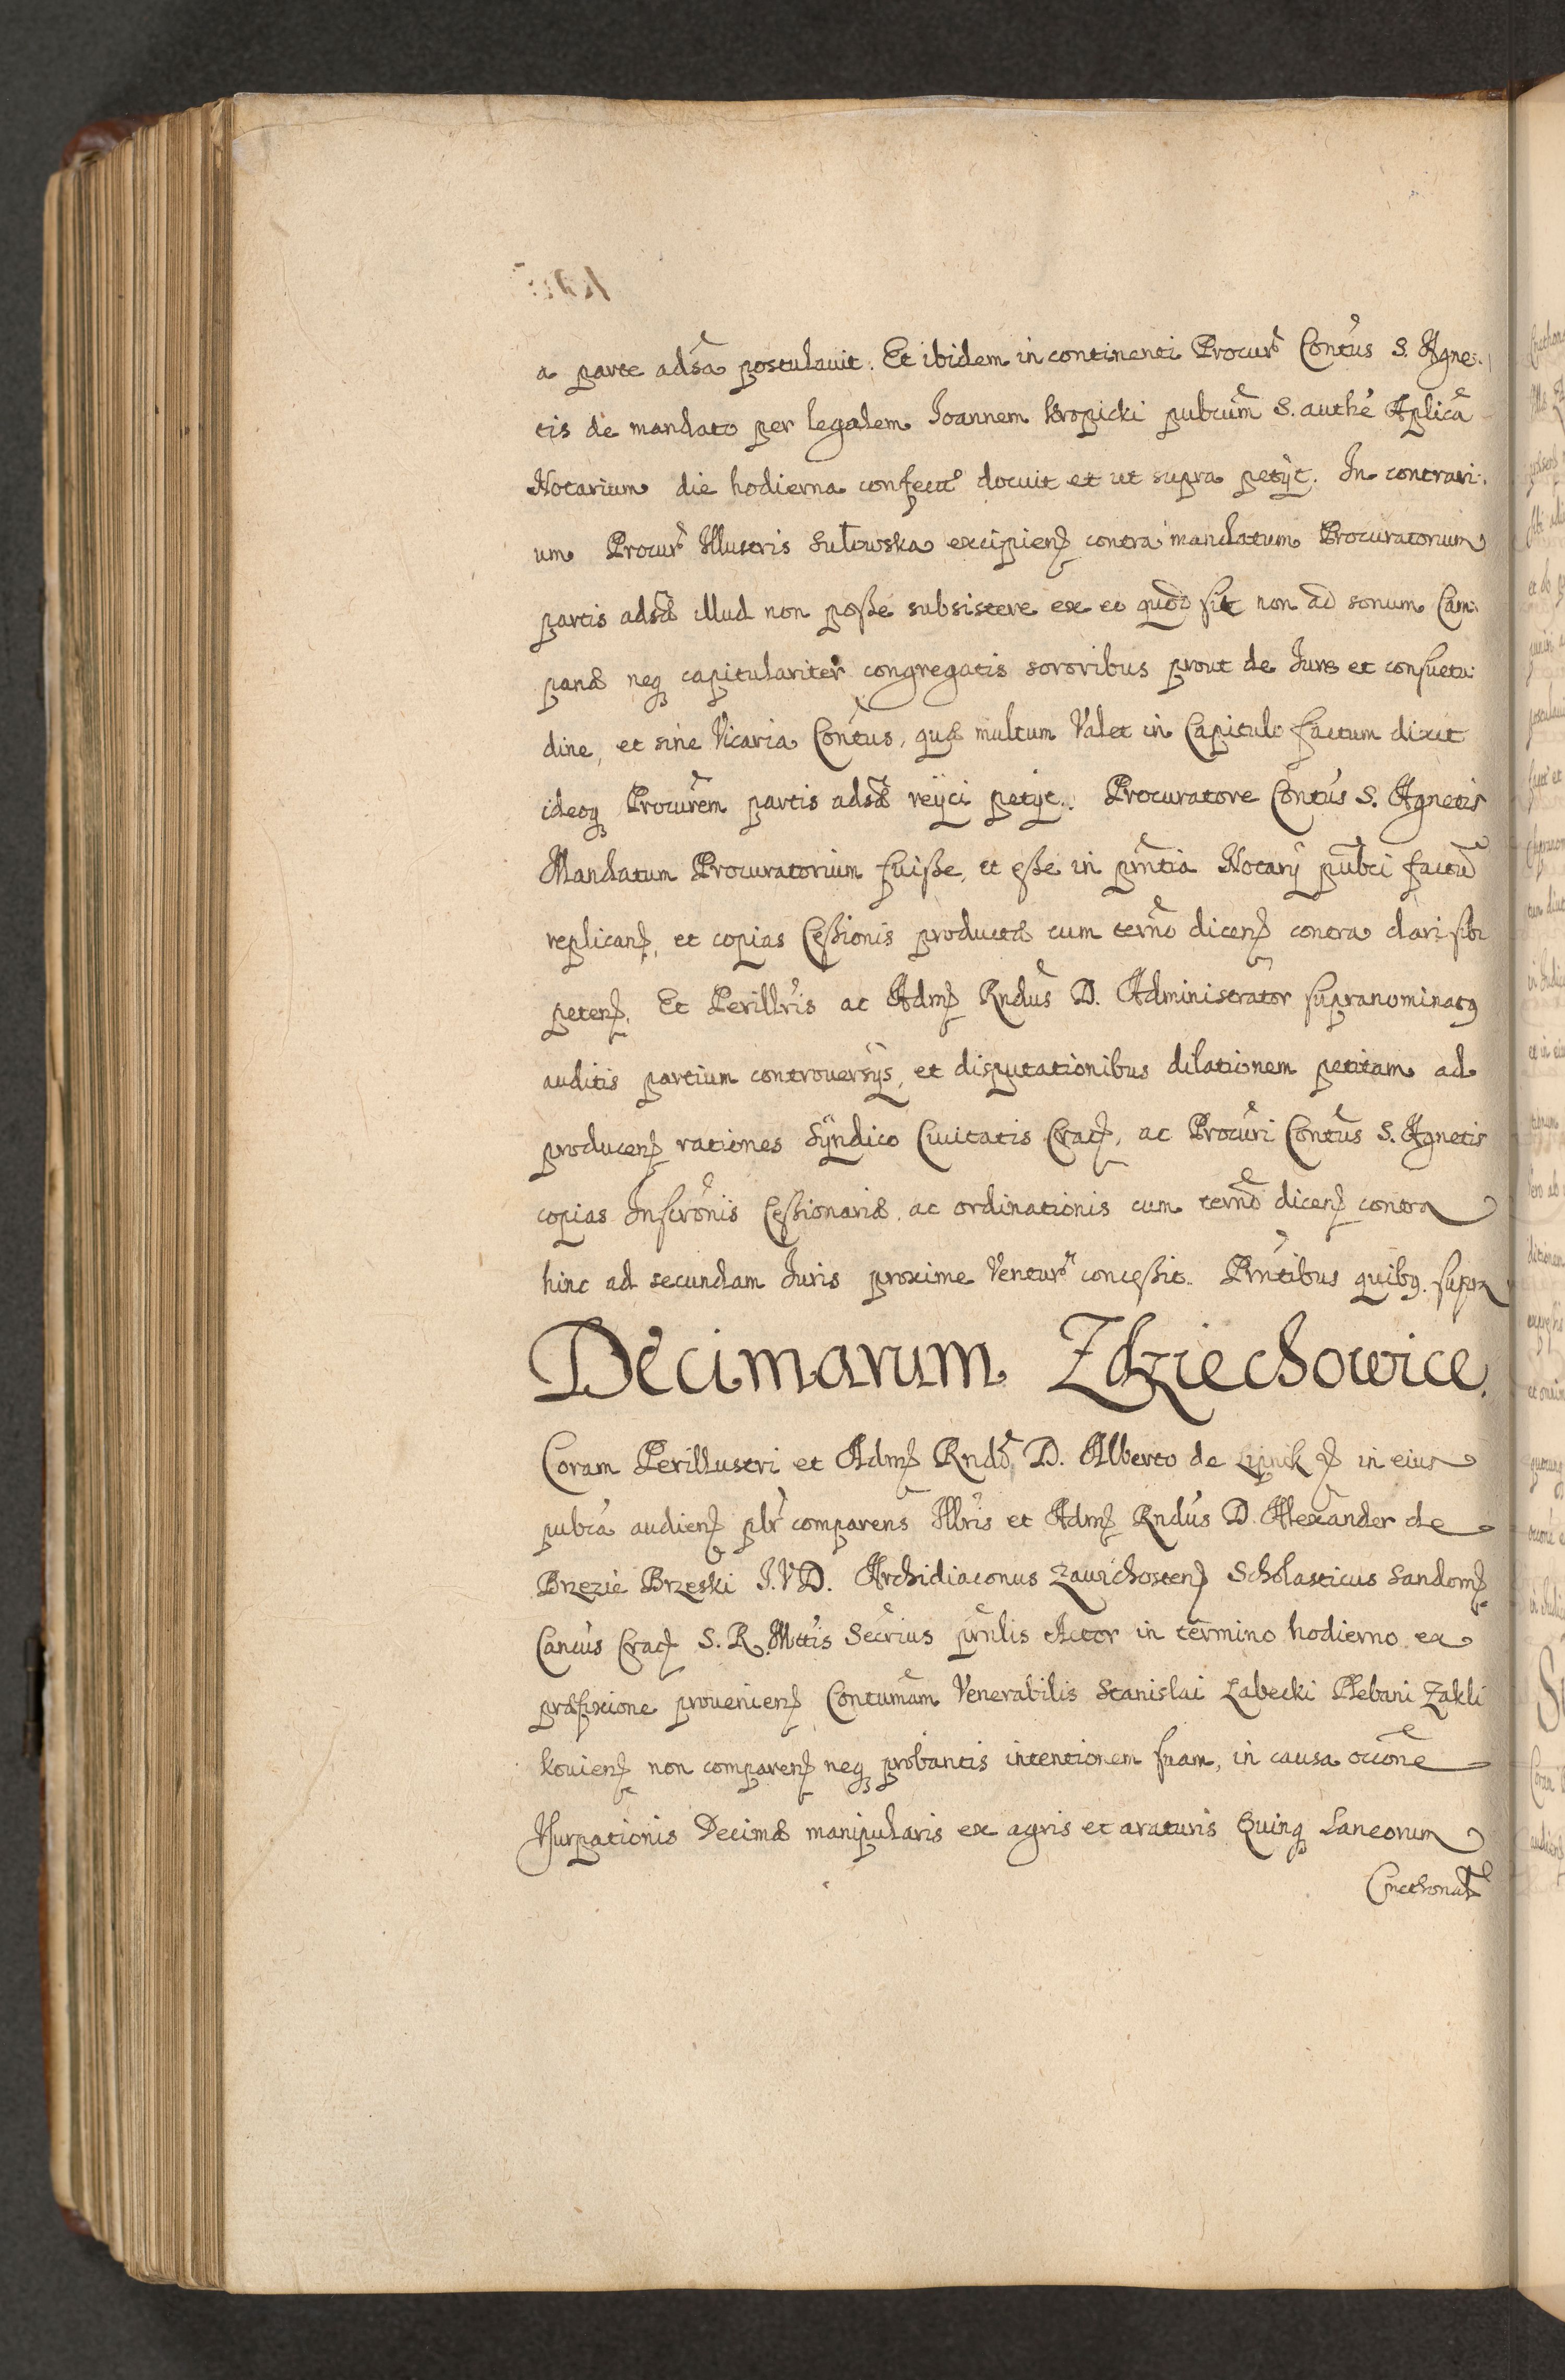 a parte adsã postulauit. Et ibidem in continenti Procurʳ Contũs S. Agne-
tis de mandato per legalem Joannem Kropicki pubcũm S. authẽ Aplicã
Notarium die hodierna confecto docuit et ut supra petÿt. In contrari-
um Procurʳ Illustris Sułowska excipienß contra mandatum Procuratorium
partis adsæ illud non poße subsistere ex eo quod sit non ad sonum Cam-
panæ neqȝ capitulariter congregatis sororibus prout de Jure et consuetu-
dine, et sine Vicaria Contũs, quæ multum Valet in Capitulo factum dixit
ideoqȝ Procurẽm partis adsæ reÿci petÿt. Procuratore Contũs S. Agnetis
Mandatum Procuratorium fuiße, et eße in prñtia Notarÿ pubci factũ
replicanß, et copias Ceßionis productæ cum termo dicenß contra dari sibi
petenß. Et Perillris ac Admß Rndus D. Administrator supranominatȝ
auditis partium controuersÿs, et disputationibus dilationem petitam ad
producenß rationes Sÿndico Ciuitatis Cracß, ac Procuri Contũs S. Agnetis
copias Inscrõnis Ceßionariæ, ac ordinationis cum termo dicenß contra
hinc ad secundam Juris proxime Venturʳ conceßit. Prñtibus quibȝ supra
Decimarum Zdziechowice.
Coram Perillustri et Admß Rndo D. Alberto de Lipnik ß in eius
pubca audienß plr comparens Illris et Admß Rndus D. Alexander de
Brezie Brzeski J.V.D. Archidiaconus Zawichostenß Scholasticus Sandomß
Cancus Cracß S.R.Mttis Secrius prñlis Actor in termino hodierno ex
præfixione prouenienß Contumãm Venerabilis Stanislai Labecki Plebani Zakli
kouienß non comparenß neqȝ probantis intentionem suam, in causa occõne
Vsurpationis Decimæ manipularis ex agris et araturis Quinqȝ Laneorum
Cmethonal